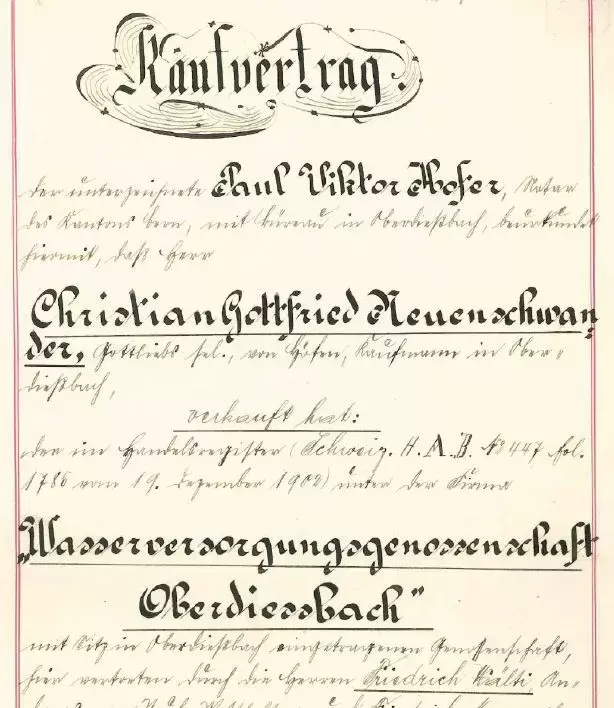 Kaufvertrag.
Der unterzeichnete Paul Viktor Hofer, Notar
des Kantons Bern, mit Büreau in Oberdießbach, beurkundet
hiermit, daß Herr
Christian Gottfried Neuenschwan=
der, Gottliebs sel., von Höfen, Kaufmann in Ober=
dießbach,
verkauft hat:
der im Handelsregister (Schweiz. H. A. B. № 447 fol.
1786 vom 19. Dezember 1902) unter der Firma
„Wasserversorgungsgenossenschaft
Oberdiessbach"
mit Sitz in Oberdießbach eingetragenen Genossenschaft,
hier vertreten durch die Herren Friedrich Kälti,